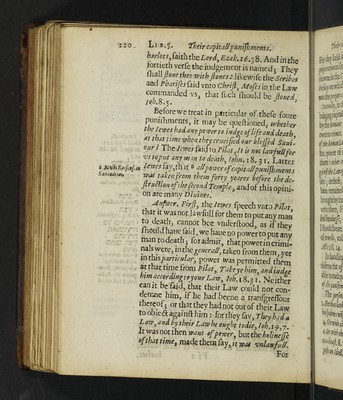 220 LIB.5. Their capitall punishments.
harlots, saith the Lord, Ezek.16.38. And in the
fortieth verse the iudgement is named; They
shall stone thee with stones: likewise the Scribes
and Pharises said vnto Christ, Moses in the Law
commanded vs, that such should be stoned,
Ioh.8.5.
Before we treat in particular of these foure
punishments, it may be questioned, whether
the Iewes had any power to iudge of life and death,
at that time when they crucified our blessed Saui-
our? The Iewes said to Pilat, It is not lawfull for
vs to put any man to death, Ioh. 18.31. Latter
Iewes say, that all power of capitall punishments
in
Sanedrim.
was taken from them forty yeares before the de-
struction of the second Temple, and of this opini-
on are many Diuines.
Answer. First, the Iewes speech vnto Pilat,
that it was not lawfull for them to put any man
to death, cannot bee vnderstood, as if they
should haue said, we haue no power to put any
man to death; for admit, that power in crimi-
nals were, in the generall, taken from them, yet
in this particular, power was permitted them
at that time from Pilat, Take ye him, and iudge
him according to your Law, Ioh. 18.31. Neither
can it be said, that their Law could not con-
demne him, if he had beene a transgressour
thereof; or that they had not out of their Law
to obiect against him: for they say, They had a
Law, and by their Law he ought to die, Ioh.19.7.
It was not then want of power, but the holinesse
of that time, made them say, it was vnlawfull.
For